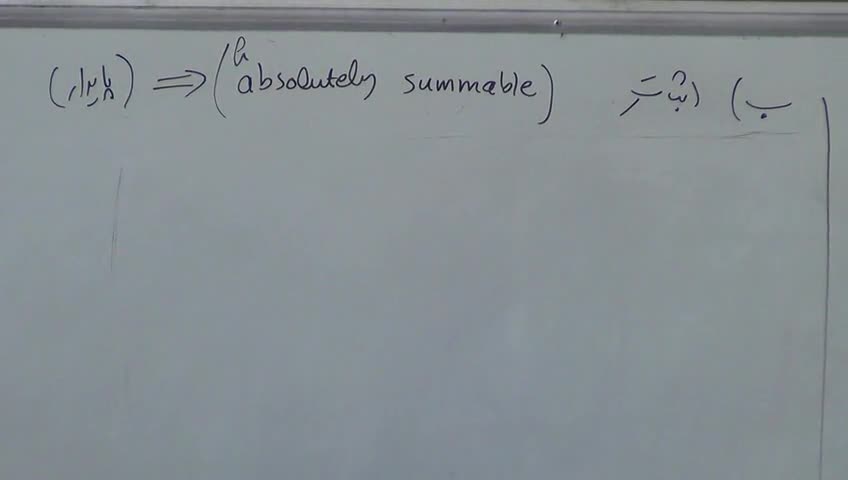 ب) اثبات (h absolutely summable) ⇐ (پایدار)